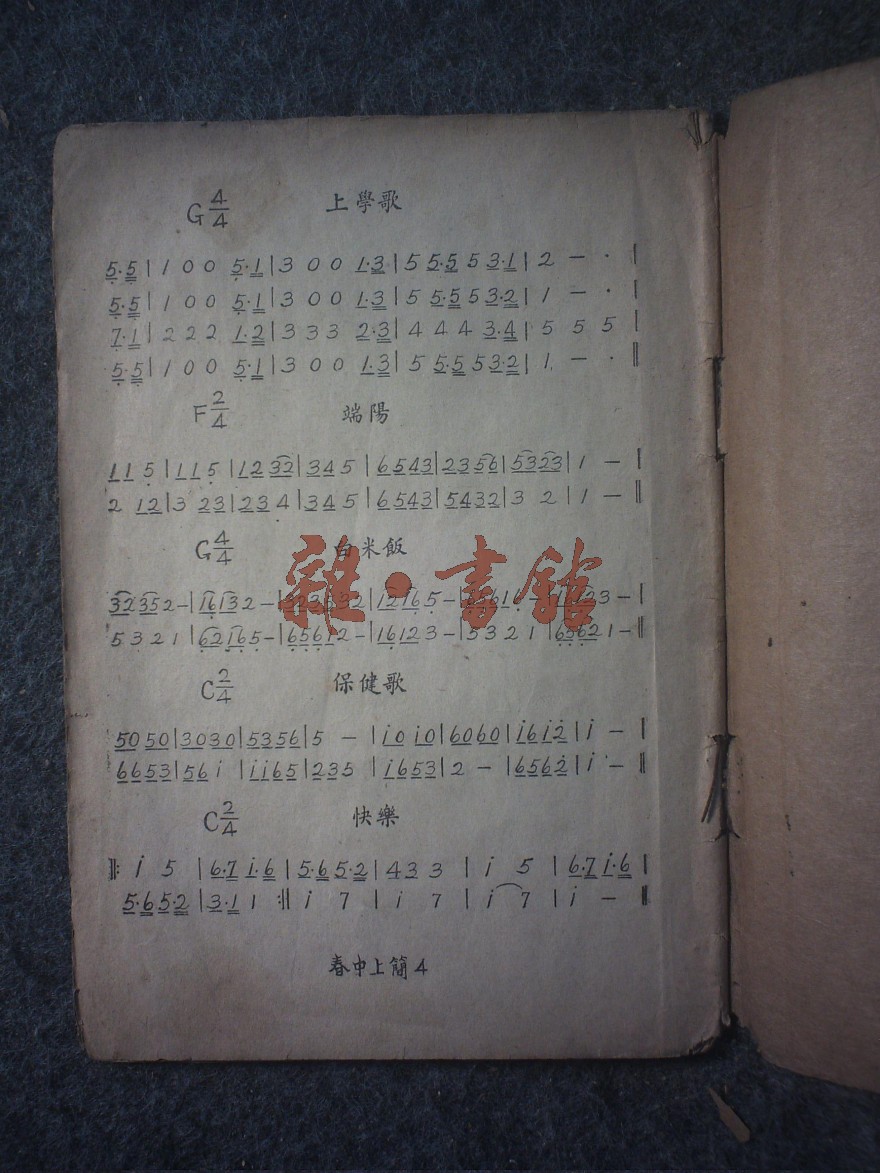 G 4/4 上學歌
5·5 | 1 0 0 5·1 | 3 0 0 1·3 | 5 5·5 5 3·1 | 2 — · |
5·5 | 1 0 0 5·1 | 3 0 0 1·3 | 5 5·5 5 3·2 | 1 — · |
7·1 | 2 2 2 1·2 | 3 3 3 2·3 | 4 4 4 3·4 | 5 5 5 |
5·5 | 1 0 0 5·1 | 3 0 0 1·3 | 5 5·5 5 3·2 | 1 — · ‖
F 2/4 端陽
1 1 5 | 1 1 5 | 1 2 3 2 | 3 4 5 | 6 5 4 3 | 2 3 5 6 | 5 3 2 3 | 1 — |
2 1 2 | 3 2 3 | 2 3 4 | 3 4 5 | 6 5 4 3 | 5 4 3 2 | 3 2 | 1 — ‖
G 4/4 白米飯
3 2 3 5 2 — | 1 6 1 3 2 — | 3 2 3 5 3 2 | 1 2 1 6 5 — | 3 —
5 3 2 1 | 6 2 1 6 5 — | 6 5 6 1 2 — | 1 6 1 2 3 — | 5 3 2 1 | 6 5 6 2 1 — ‖
C 2/4 保健歌
5 0 5 0 | 3 0 3 0 | 5 3 5 6 | 5 — | i 0 i 0 | 6 0 6 0 | i 6 i 2̇ | i — |
6 6 5 3 | 5 6 i | i i 6 5 | 2 3 5 | i 6 5 3 | 2 — | 6 5 6 2̇ | i — ‖
C 2/4 快樂
‖: i 5 | 6·7 i·6 | 5·6 5·2 | 4 3 3 | i 5 | 6·7 i·6 |
5·6 5·2 | 3·1 1 :‖ i 7 | i 7 | i 7 | i — ‖
春中上簡4
雜·書館